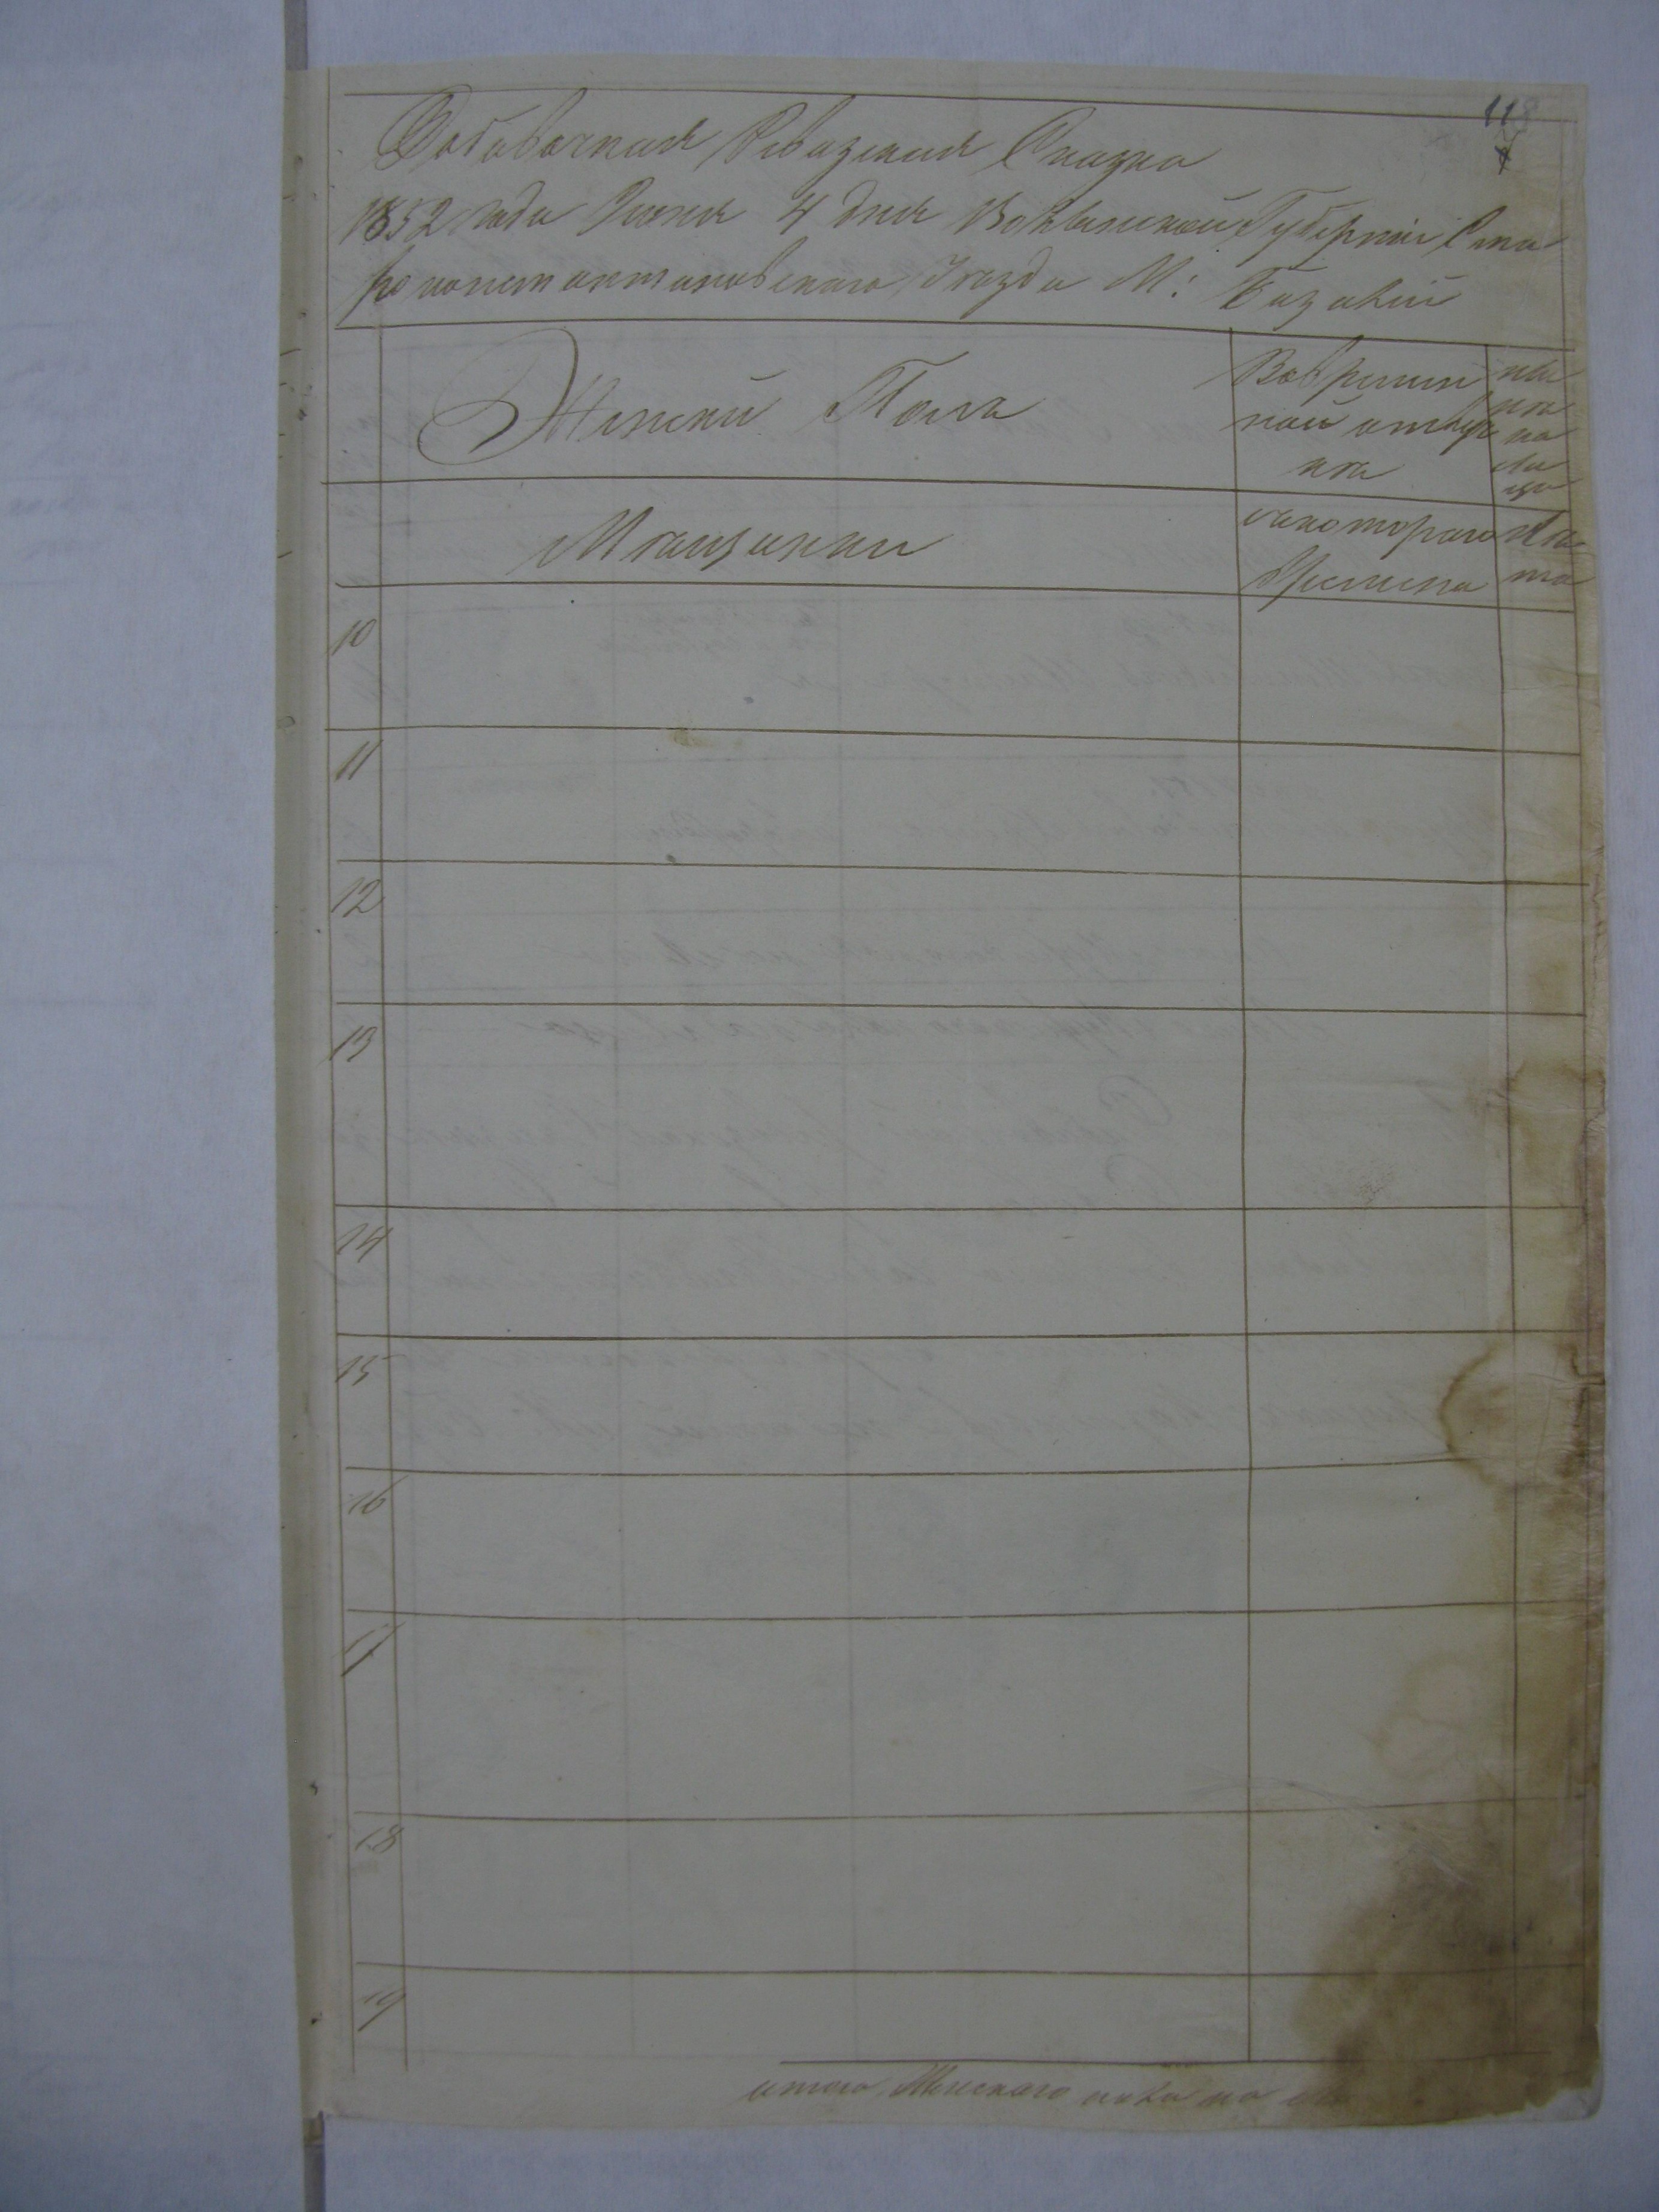 118
Добавочная Ревизская Сказка
1852 года Июня 4 дня Волынской Губернии Ста
роконстантиновского Уезда М: Базалий
Женский Пол
Во временной отлучке
ны не на ли цо
Мещанки
с которого времени
Лета
10
11
12
13
14
15
16
17
18
19
итого Женского пола на